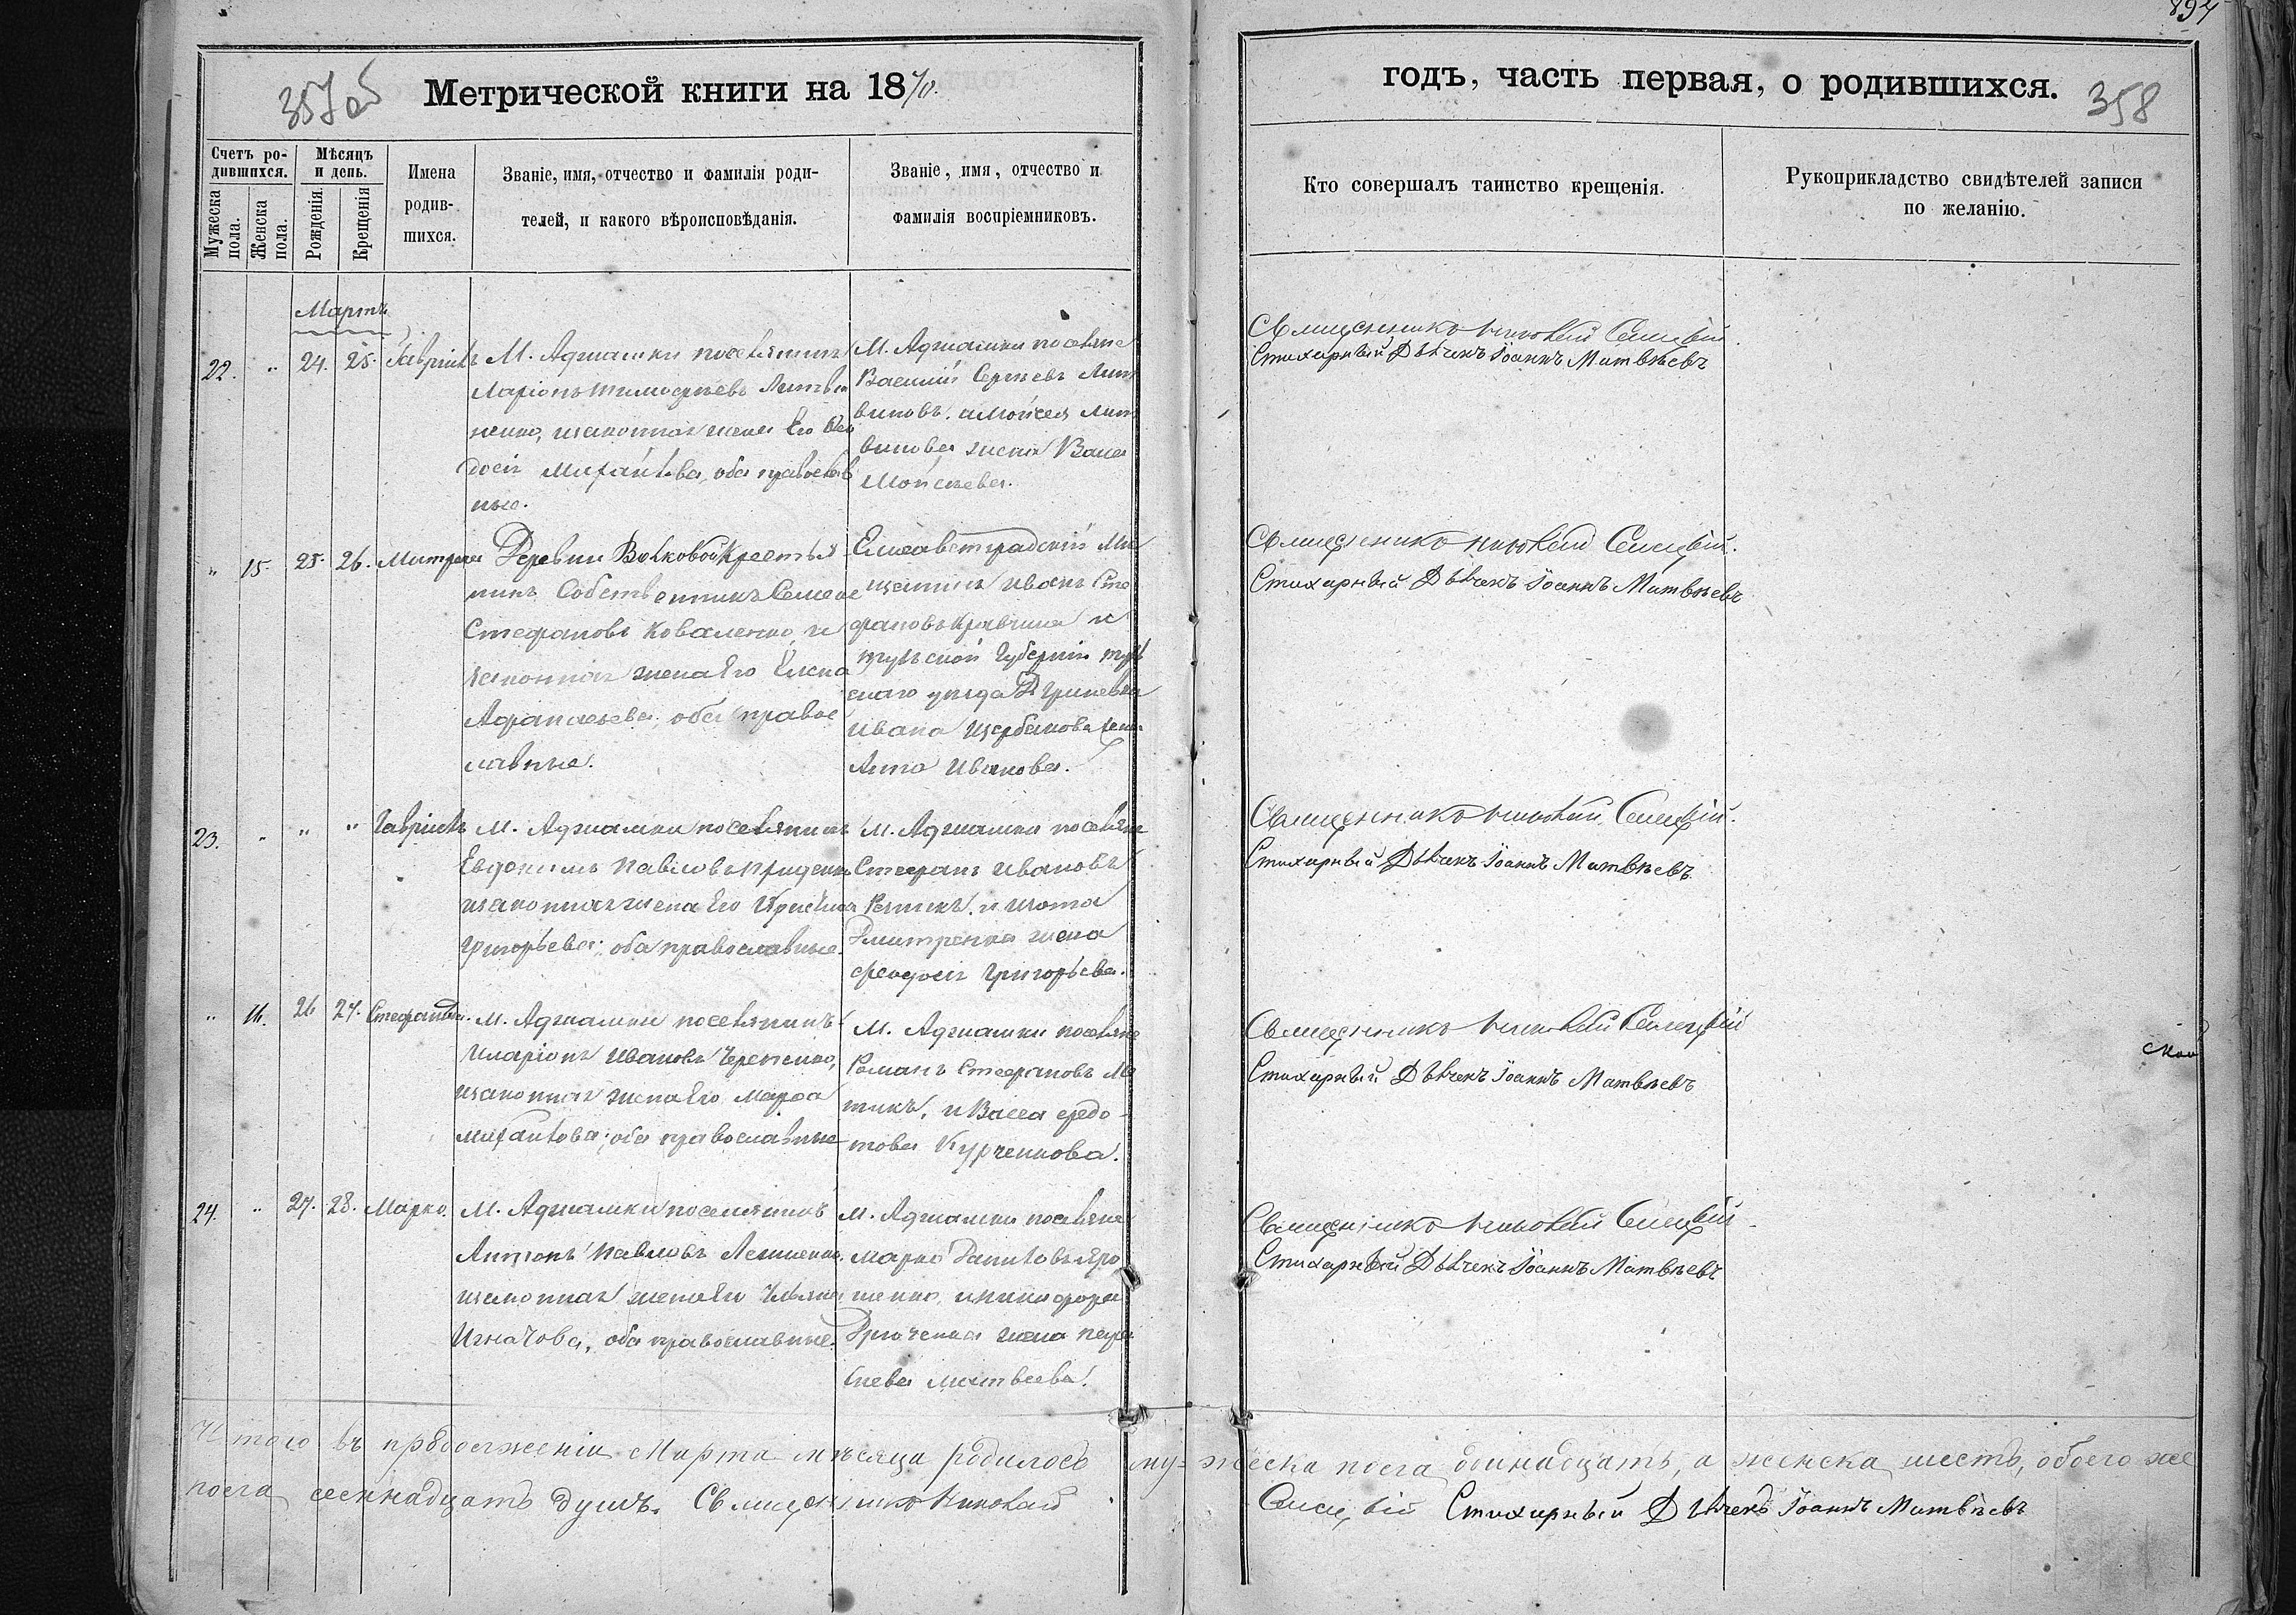 894
357об
Метрической книги на 1870.
годъ, часть первая, о родившихся.
358
Счетъ ро-
дившихся.
Мѣсяцъ
и день.
Мужеска
пола.
Женска
пола.
Рожденія.
Крещенія
Имена
родив-
шихся.
Званіе, имя, отчество и фамилія роди-
телей, и какого вѣроисповѣданія.
Званіе, имя, отчество и
фамилія воспріемниковъ.
Кто совершалъ таинство крещенія.
Рукоприкладство свидѣтелей записи
по желанію.
Мартъ
22. " 24. 25. Гавріилъ
М. Аджамки поселянинъ
Ларіонъ Тимофѣевъ Литви
ненко, изаконная жена Его Ѳео
досія Михайлова, оба православ
ные.
М. Аджамки поселяне
Василій Сергѣевъ Лит
виновъ. иМойсея Лит
винова жена
Мойсѣева.
Священникъ Николай
Стихарный Дьячекъ Іоаннъ Матвѣевъ
" 15. 25. 26.
Деревни Волковой Крестья
нинъ Собственникъ
Стефановъ Коваленко, и
законная жена Его Елена
Афанасьева, оба правос
лавные.
Елисаветградскій Мѣ
щанинъ Иванъ Сте
фановъ Кравченко и
Тульской Губерніи Туль
скаго уѣзда
Ивана Щербакова жена
Анна Иванова.
Священникъ Николай
Стихарный Дьячекъ Іоаннъ Матвѣевъ
23. " " " Гавріилъ
М. Аджамки поселянинъ
Евдокимъ Павловъ
изаконная жена Его
Григорьева; оба православные.
М. Аджамки поселяне
Стефанъ Ивановъ
Дмитренка жена
Феодосія Григорьева.
Священникъ Николай
Стихарный Дьячекъ Іоаннъ Матвѣевъ
" 16. 26 27. Стефанида.
М. Аджамки поселянинъ
Иларіонъ Ивановъ
изаконная жена Его Марфа
Михайлова; оба православные
М. Аджамки поселяне
Романъ Стефановъ
и Васса Федо-
това Курченкова.
Священникъ Николай
Стихарный Дьячекъ Іоаннъ Матвѣевъ
24. " 27. 28. Марко.
М. Аджамки поселянинъ
Антонъ Павловъ
изаконная жена Его Ульяна
Игнатова, оба православные.
М. Аджамки поселяне
Марко Даниловъ Яро
шенко, иникифора
жена
Матвѣева.
Священникъ Николай
Стихарный Дьячекъ Іоаннъ Матвѣевъ
Итого въ продолженіи Марта мѣсяца родилось му-жеска пола одинадцать, а женска шесть, обоего же
пола семнадцать душъ. Священникъ Николай
Стихарный Дьячекъ Іоаннъ Матвѣевъ